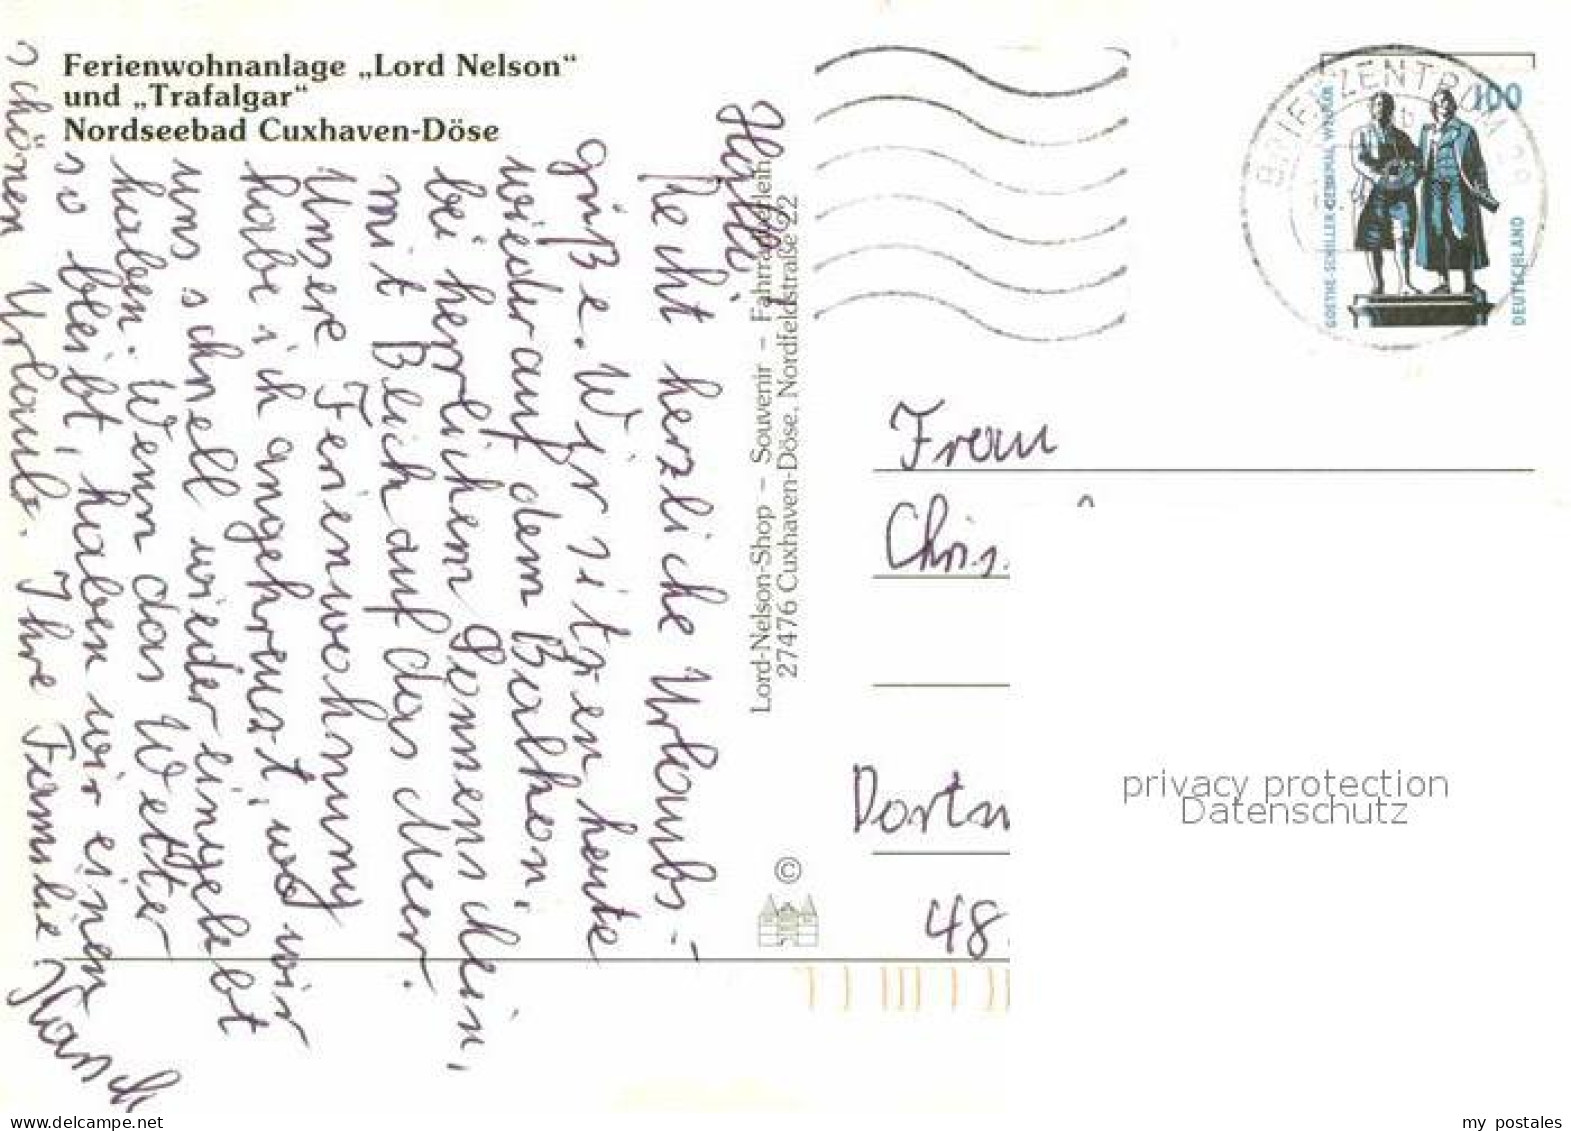 Ferienwohnanlage „Lord Nelson“
und „Trafalgar“
Nordseebad Cuxhaven-Döse
Hallo
Recht herzliche Urlaubs-
grüße. Wir sitzen heute
wieder auf dem Balkon,
bei herrlichem Sonnenschein,
mit Blick auf das Meer.
Unsere Ferienwohnung
habe ich angekreuzt, wo wir
uns schnell wieder eingelebt
haben. Wenn das Wetter
so bleibt, haben wir einen
schönen Urlaub. Ihre Familie
Lord-Nelson-Shop – Souvenir – Fahrradverleih
27476 Cuxhaven-Döse, Nordfeldstraße 22
©
BRIEFZENTRUM
100
GOETHE-SCHILLER-DENKMAL WEIMAR
DEUTSCHLAND
Frau
Chris
Dortm
48
privacy protection
Datenschutz
delcampe.net
my_postales